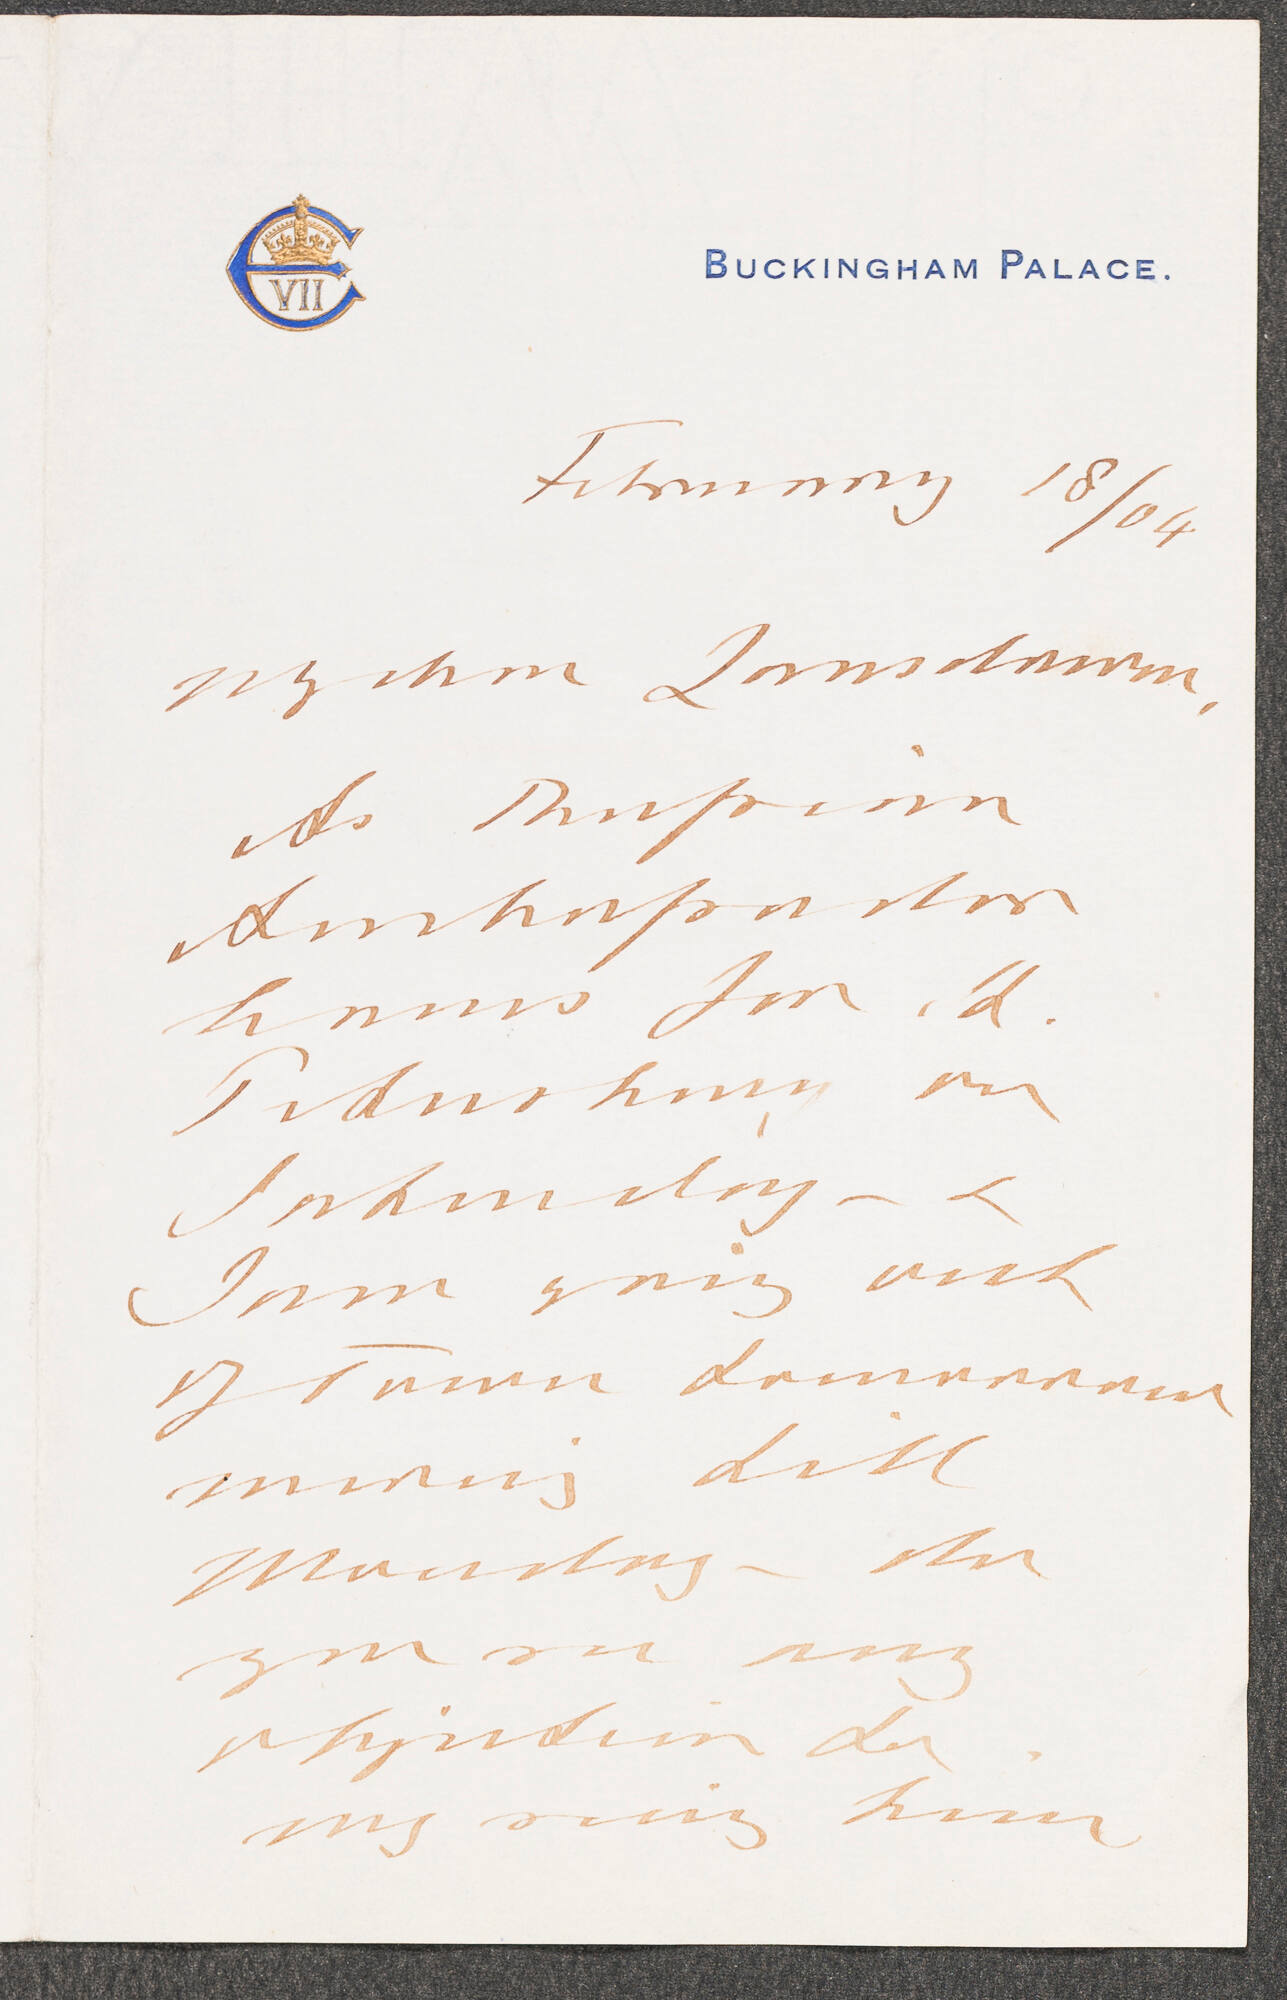 VII
BUCKINGHAM PALACE.
February 18/04
My dear Lansdowne,
As Russian
Ambassador
leaves for St.
Petersburg on
Saturday – &
I am going out
of Town tomorrow
morning till
Monday – do
you see any
objection to
my seeing him